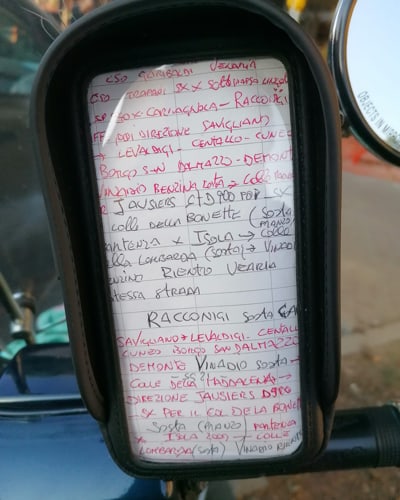 CSO GARIBALDI VENARIA
CSO TRAPANI SX X SOTTOPASSA
X CARMAGNOLA - RACCONIGI
DIREZIONE SAVIGLIANO
X LEVALDIGI - CENTALLO - CUNEO
BORGO SAN DALMAZZO - DEMONTE
VINADIO BENZINA → COLLE
JAUSIERS D900 PER SX
COLLE DELLA BONETTE (SOSTA
MANZO)
X ISOLA → COLLE
LOMBARDA (SOSTA) → VINADIO
RIENTO VEARIA
STESSA STRADA
RACCONIGI SOSTA
SAVIGLIANO X LEVALDIGI. CENTALLO
CUNEO BORGO SAN DALMAZZO
DEMONTE VINADIO SOSTA -
COLLE DELLA MADDALENA -
DIREZIONE JAUSIERS D900
- SX PER IL COL DE LA BONETTE
SOSTA (MANZO) PARTENZA
X ISOLA 2000 - COLLE
LOMBARDA (SOSTA) VINADIO
OBJECTS IN MIRROR